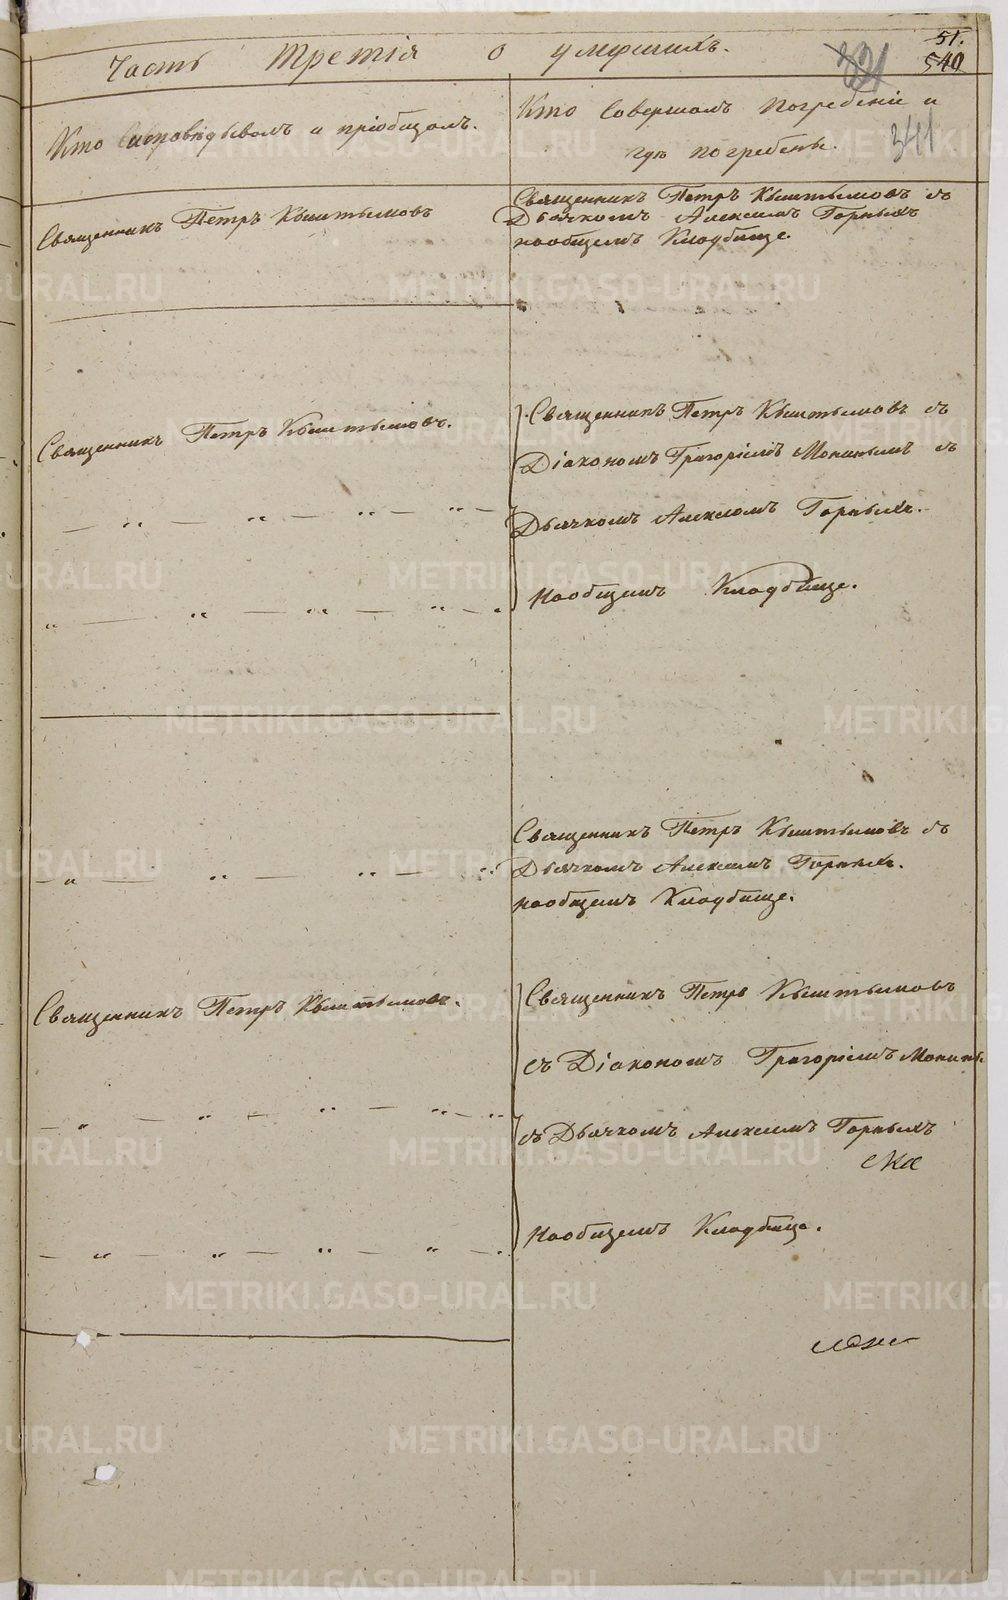 Часть Третія о умершихъ.
51.
540
341
Кто исповѣдывалъ и пріобщалъ.
Кто Совершалъ Погребеніе и
гдѣ погребены.
Священникъ Петръ Кыштымовъ
Священникъ Петръ Кыштымовъ съ
Дьячкомъ Алексіемъ Горныхъ
наобщемъ Кладбище.
Священникъ Петръ Кыштымовъ.
Священникъ Петръ Кыштымовъ съ
Діакономъ Григоріемъ Мокинымъ съ
Дьячкомъ Алексіемъ Горныхъ.
Наобщемъ Кладбище.
Священникъ Петръ Кыштымовъ съ
Дьячкомъ Алексіемъ Горныхъ.
наобщемъ Кладбище.
Священникъ Петръ Кыштымовъ.
Священникъ Петръ Кыштымовъ
съ Діакономъ Григоріемъ
съ Дьячкомъ Алексіемъ Горныхъ
Наобщемъ Кладбище.
METRIKI.GASO-URAL.RU